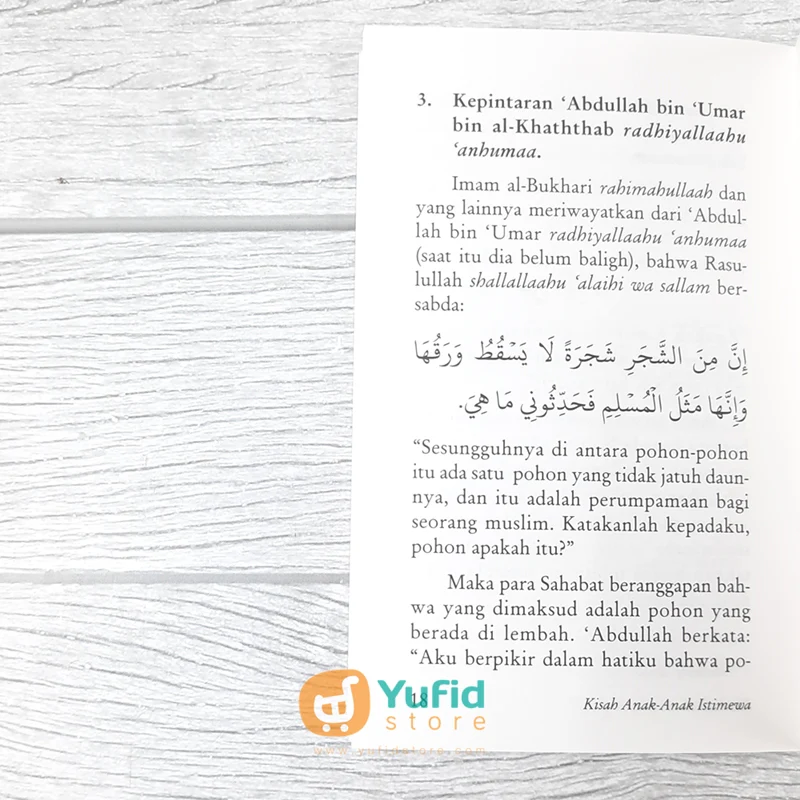 3. Kepintaran ‘Abdullah bin ‘Umar
bin al-Khaththab radhiyallaahu
‘anhumaa.
Imam al-Bukhari rahimahullaah dan
yang lainnya meriwayatkan dari ‘Abdul-
lah bin ‘Umar radhiyallaahu ‘anhumaa
(saat itu dia belum baligh), bahwa Rasu-
lullah shallallaahu ‘alaihi wa sallam ber-
sabda:
إِنَّ مِنَ الشَّجَرِ شَجَرَةً لَا يَسْقُطُ وَرَقُهَا
وَإِنَّهَا مَثَلُ الْمُسْلِمِ فَحَدِّثُونِي مَا هِيَ.
“Sesungguhnya di antara pohon-pohon
itu ada satu pohon yang tidak jatuh daun-
nya, dan itu adalah perumpamaan bagi
seorang muslim. Katakanlah kepadaku,
pohon apakah itu?”
Maka para Sahabat beranggapan bah-
wa yang dimaksud adalah pohon yang
berada di lembah. ‘Abdullah berkata:
“Aku berpikir dalam hatiku bahwa po-
18 Kisah Anak-Anak Istimewa
Yufid
store
www.yufidstore.com